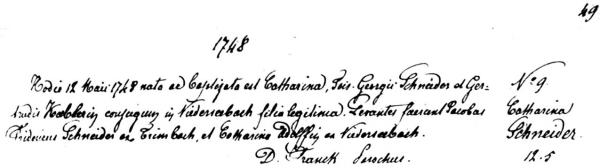 49
1748
Hodie 12 Maii 1748 nata ac Baptizata est Catharina, Jois. Georgii Schneider et Ger-
trudis conjugum in Niederseebach filia legitima. Levantes fuerunt Jacobus
Schneider ex Trimbach, et Catharina ex Niederseebach.
D. Franck Parochus.
No 9.
Catharina
Schneider
12.5